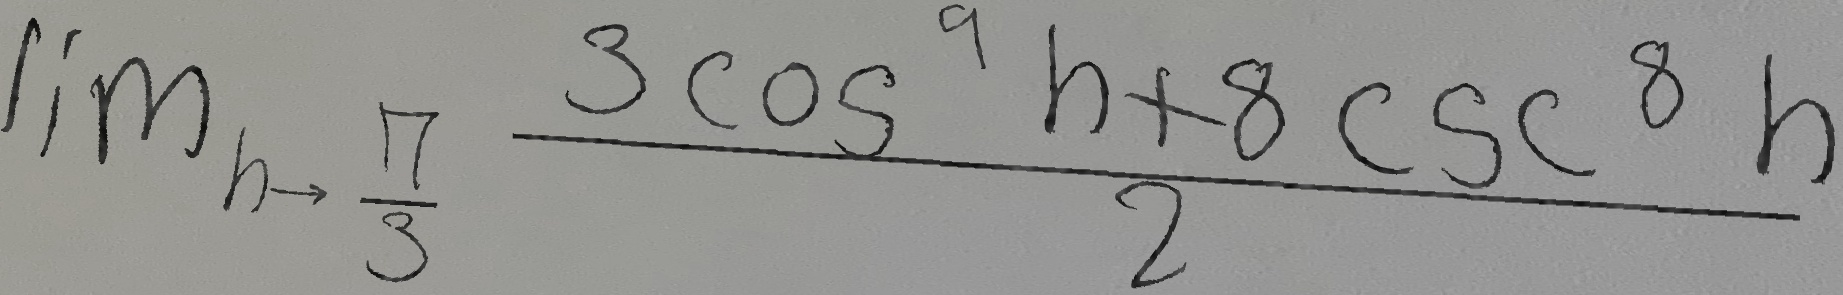 \lim_{h \to \frac{\pi}{3}} \frac{3\cos^9 h + 8\csc^8 h}{2}